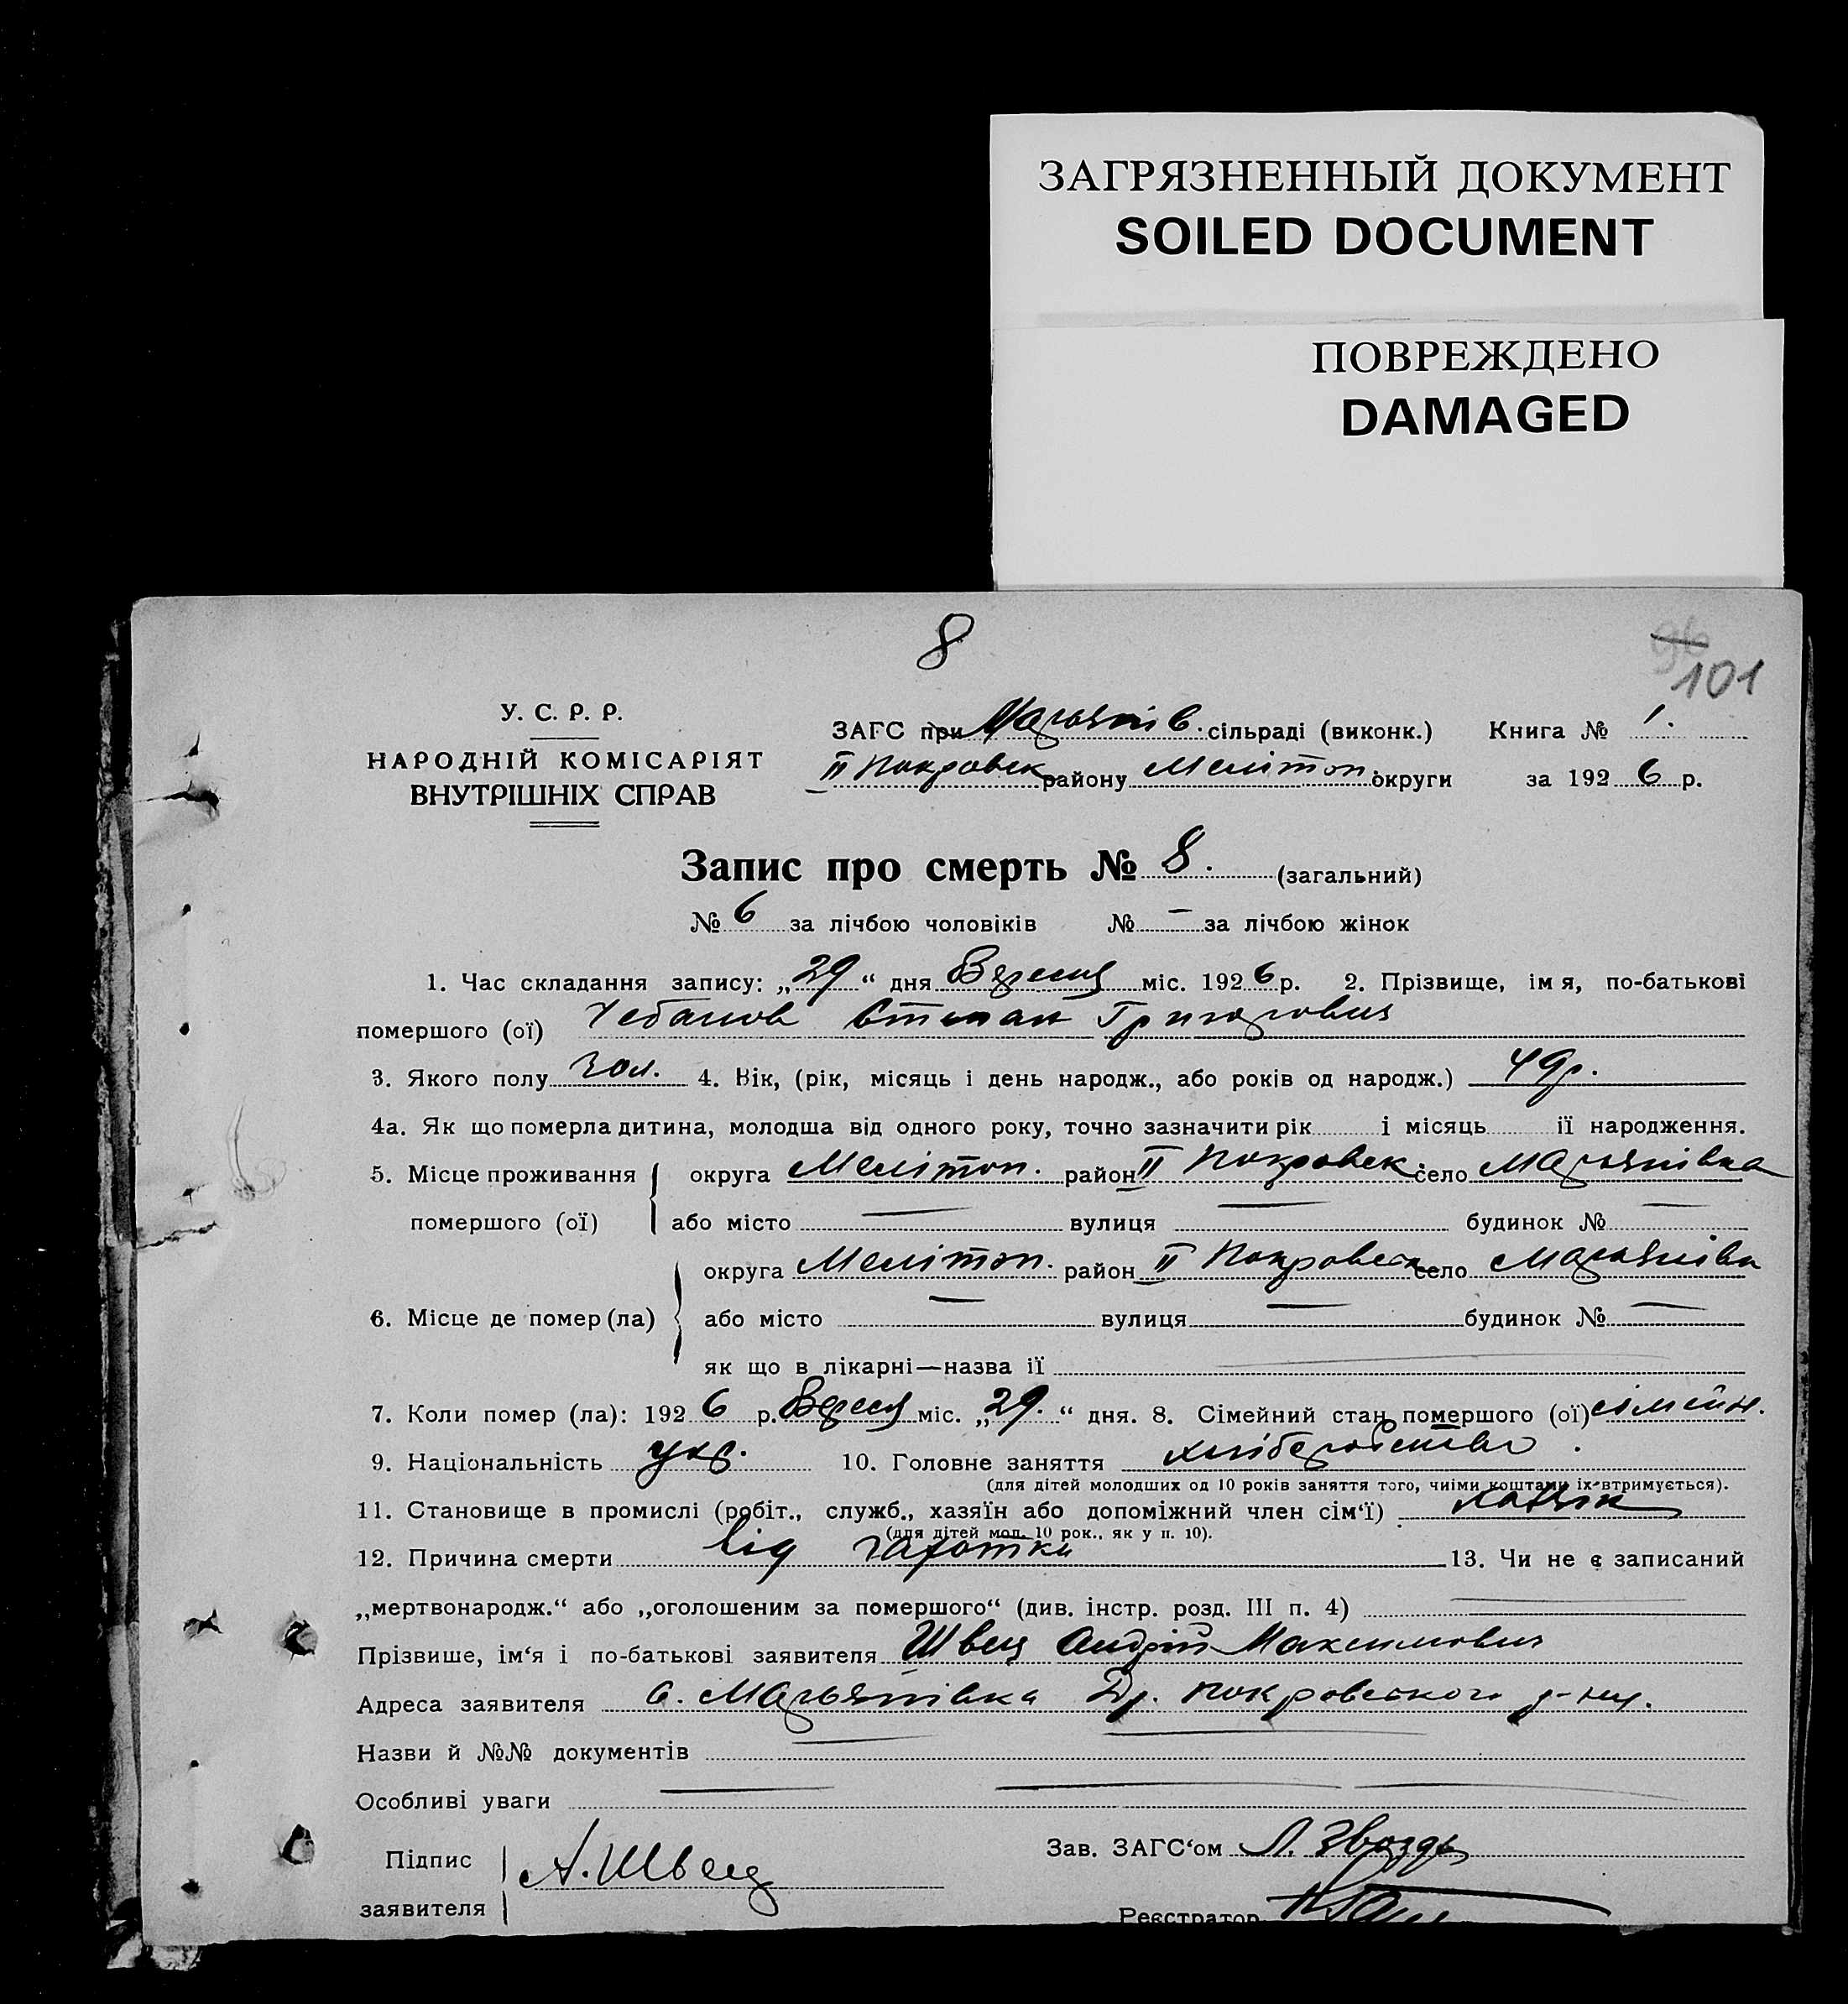 ЗАГРЯЗНЕННЫЙ ДОКУМЕНТ
SOILED DOCUMENT
ПОВРЕЖДЕНО
DAMAGED
8
96
101
У. С. Р. Р.
НАРОДНІЙ КОМІСАРІЯТ
ВНУТРІШНІХ СПРАВ
ЗАГС при Мар'янів. сільраді (виконк.) Книга № 1.
II Покровськ району Меліто́п. округи за 1926 р.
Запис про смерть № 8. (загальний)
№ 6 за лічбою чоловіків № — за лічбою жінок
1. Час складання запису: „29“ дня Вересня міс. 1926 р. 2. Прізвище, ім я, по-батькові
помершого (ої) Чебанов Степан Григорович
3. Якого полу чол. 4. Вік, (рік, місяць і день народж., або років од народж.) 49 р.
4а. Як що померла дитина, молодша від одного року, точно зазначити рік і місяць її народження.
5. Місце проживання округа Мелітоп. район II Покровськ. село Мар'янівка
помершого (ої) або місто — вулиця — будинок № —
округа Мелітоп. район II Покровськ село Мар'янівка
6. Місце де помер (ла) або місто — вулиця — будинок № —
як що в лікарні—назва її —
7. Коли помер (ла): 1926 р. Вересня міс. „29.“ дня. 8. Сімейний стан помершого (ої) сімейн.
9. Національність укр. 10. Головне заняття хліборобство.
(для дітей молодших од 10 років заняття того, чиіми коштами їх втримується).
11. Становище в промислі (робіт., служб., хазяїн або допоміжний член сім‘ї) хазяїн
(для дітей мол. 10 рок., як у п. 10).
12. Причина смерти від чахотки 13. Чи не є записаний
„мертвонародж.“ або „оголошеним за помершого“ (див. інстр. розд. III п. 4) —
Прізвише, ім‘я і по-батькові заявителя Швец Андрій Максимович
Адреса заявителя с. Мар'янівка Др. Покровського р-ну.
Назви й №№ документів — —
Особливі уваги — — —
Підпис заявителя А. Швец
Зав. ЗАГС‘ом Л. Звоздь
Реєстратор